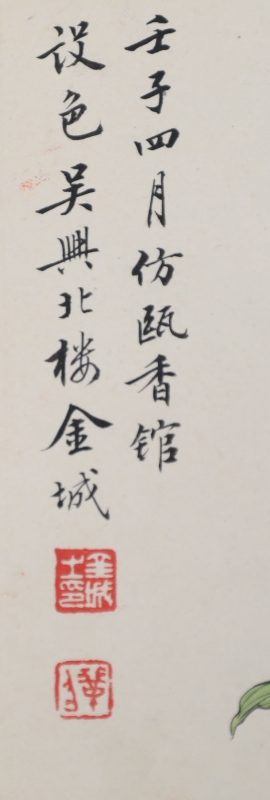 壬子四月仿甌香館
設色吳興北楼金城
金城